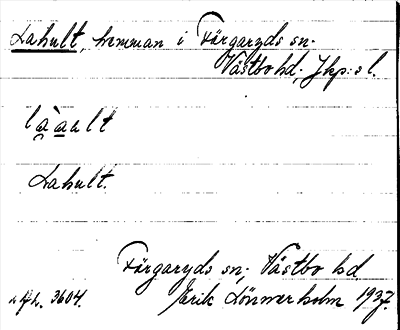 Lahult, hemman i Färgaryds sn.
Västbo hd. Jkp:s l.
là̱a̱ult
Lahult.
Färgaryds sn; Västbo hd
3604. Erik Lönnerholm 1937.